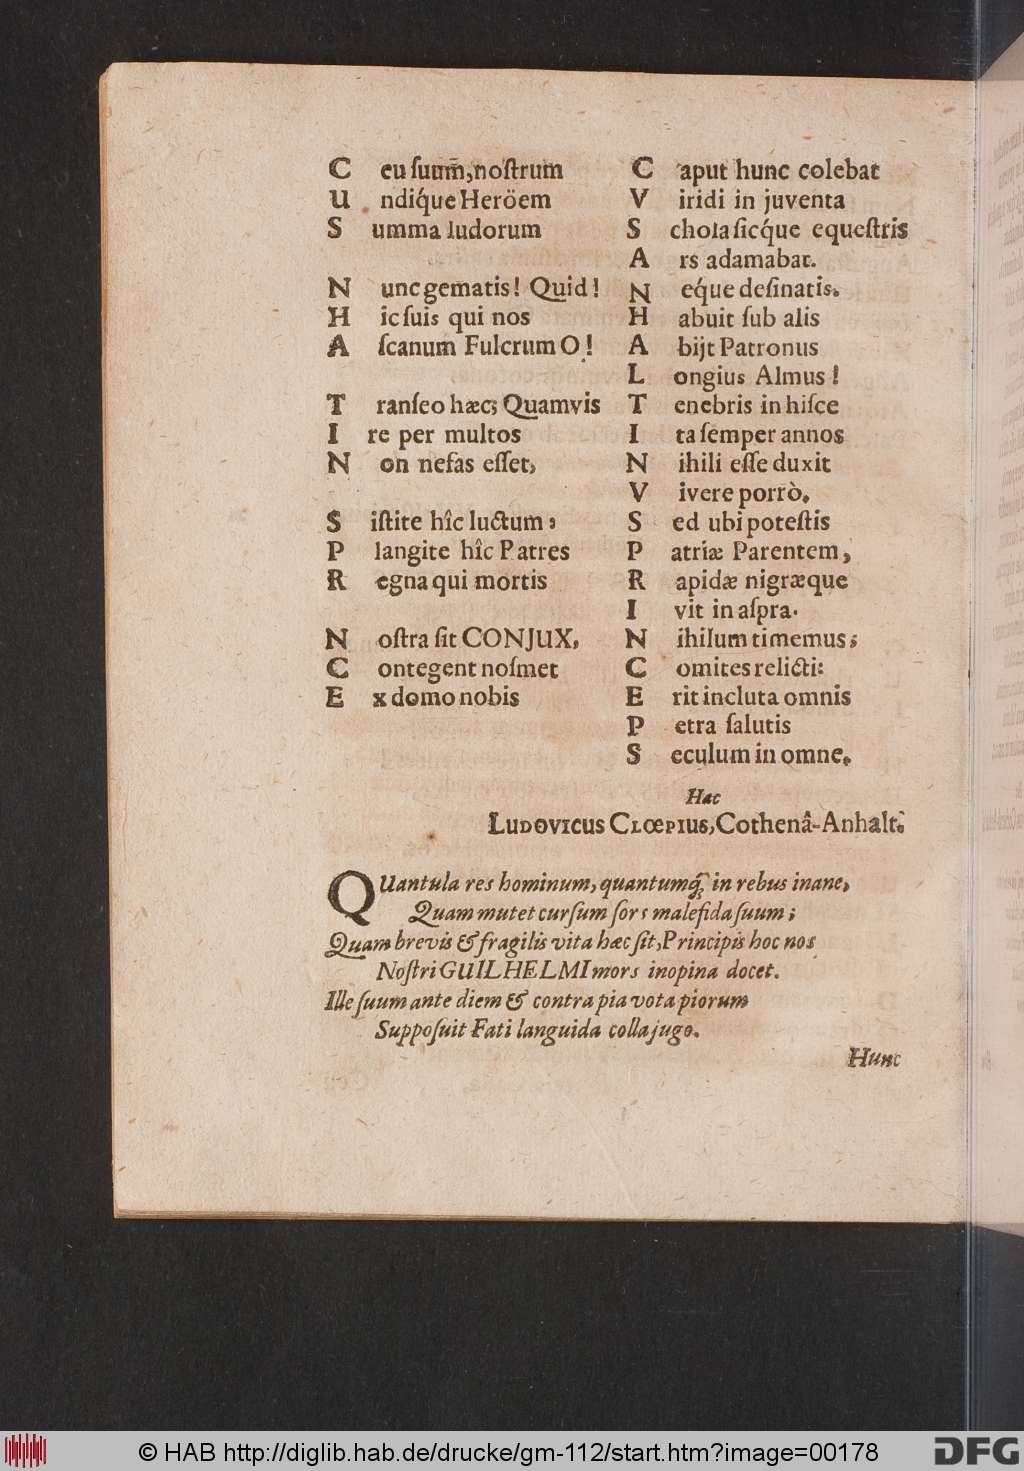 C eu ſuum̃, noſtrum C aput hunc colebat
U ndiq́ue Heröem V iridi in juventa
S umma ludorum S chola ſicq́ue equeſtris
A rs adamabat.
N unc gematis! Quid! N eq́ue deſinatis.
H ic ſuis qui nos H abuit ſub alis
A ſcanum Fulcrum O! A bijt Patronus
L ongius Almus!
T ranſeo hæc; Quamvis T enebris in hiſce
I re per multos I ta ſemper annos
N on nefas eſſet, N ihili eſſe duxit
V ivere porrò.
S iſtite hîc luctum: S ed ubi poteſtis
P langite hîc Patres P atriæ Parentem,
R egna qui mortis R apidæ nigræque
I vit in aſpra.
N oſtra ſit CONJUX, N ihilum timemus;
C ontegent noſmet C omites relicti:
E x domo nobis E rit incluta omnis
P etra ſalutis
S eculum in omne.
Hac
LUDOVICUS CLŒPIUS, Cothenâ-Anhalt.
QUantula res hominum, quantumq́; in rebus inane,
Quam mutet curſum ſors malefida ſuum;
Quam brevis & fragilis vita hæc ſit, Principis hoc nos
Noſtri GUILHELMI mors inopina docet.
Ille ſuum ante diem & contra pia vota piorum
Suppoſuit Fati languida colla jugo.
Hunc
© HAB http://diglib.hab.de/drucke/gm-112/start.htm?image=00178
DFG